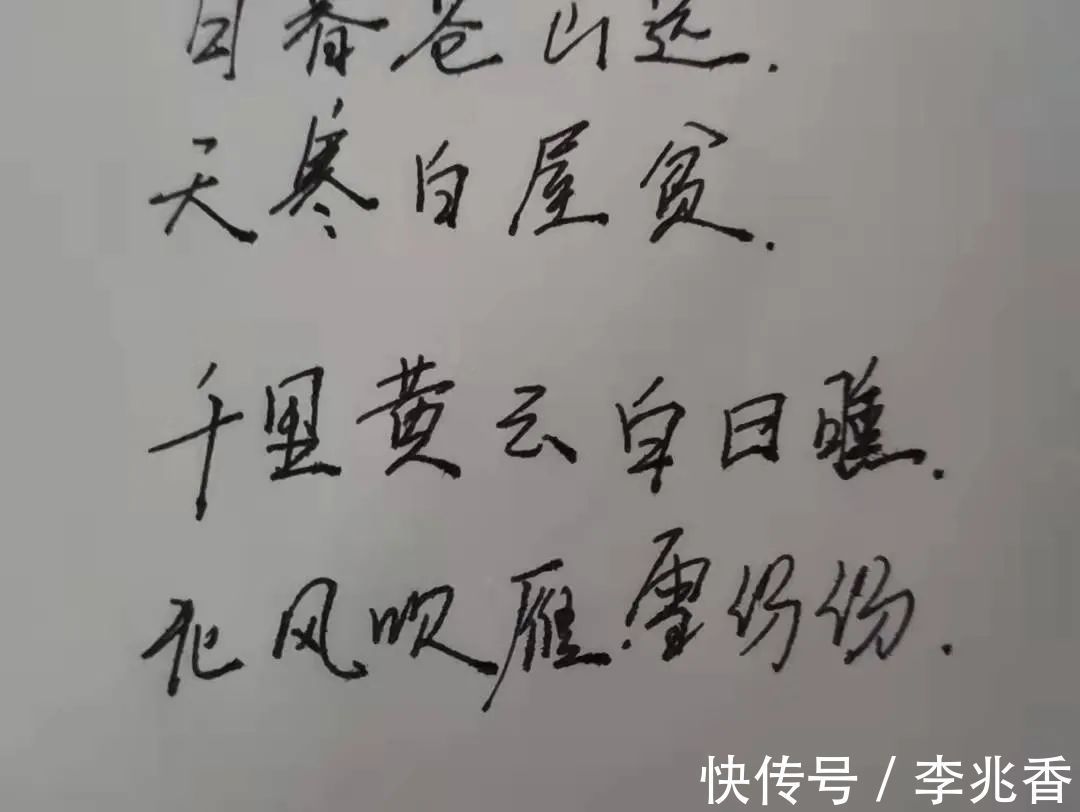 日暮苍山远.
天寒白屋贫.
千里黄云白日曛.
北风吹雁雪纷纷.
快传号 / 李兆香